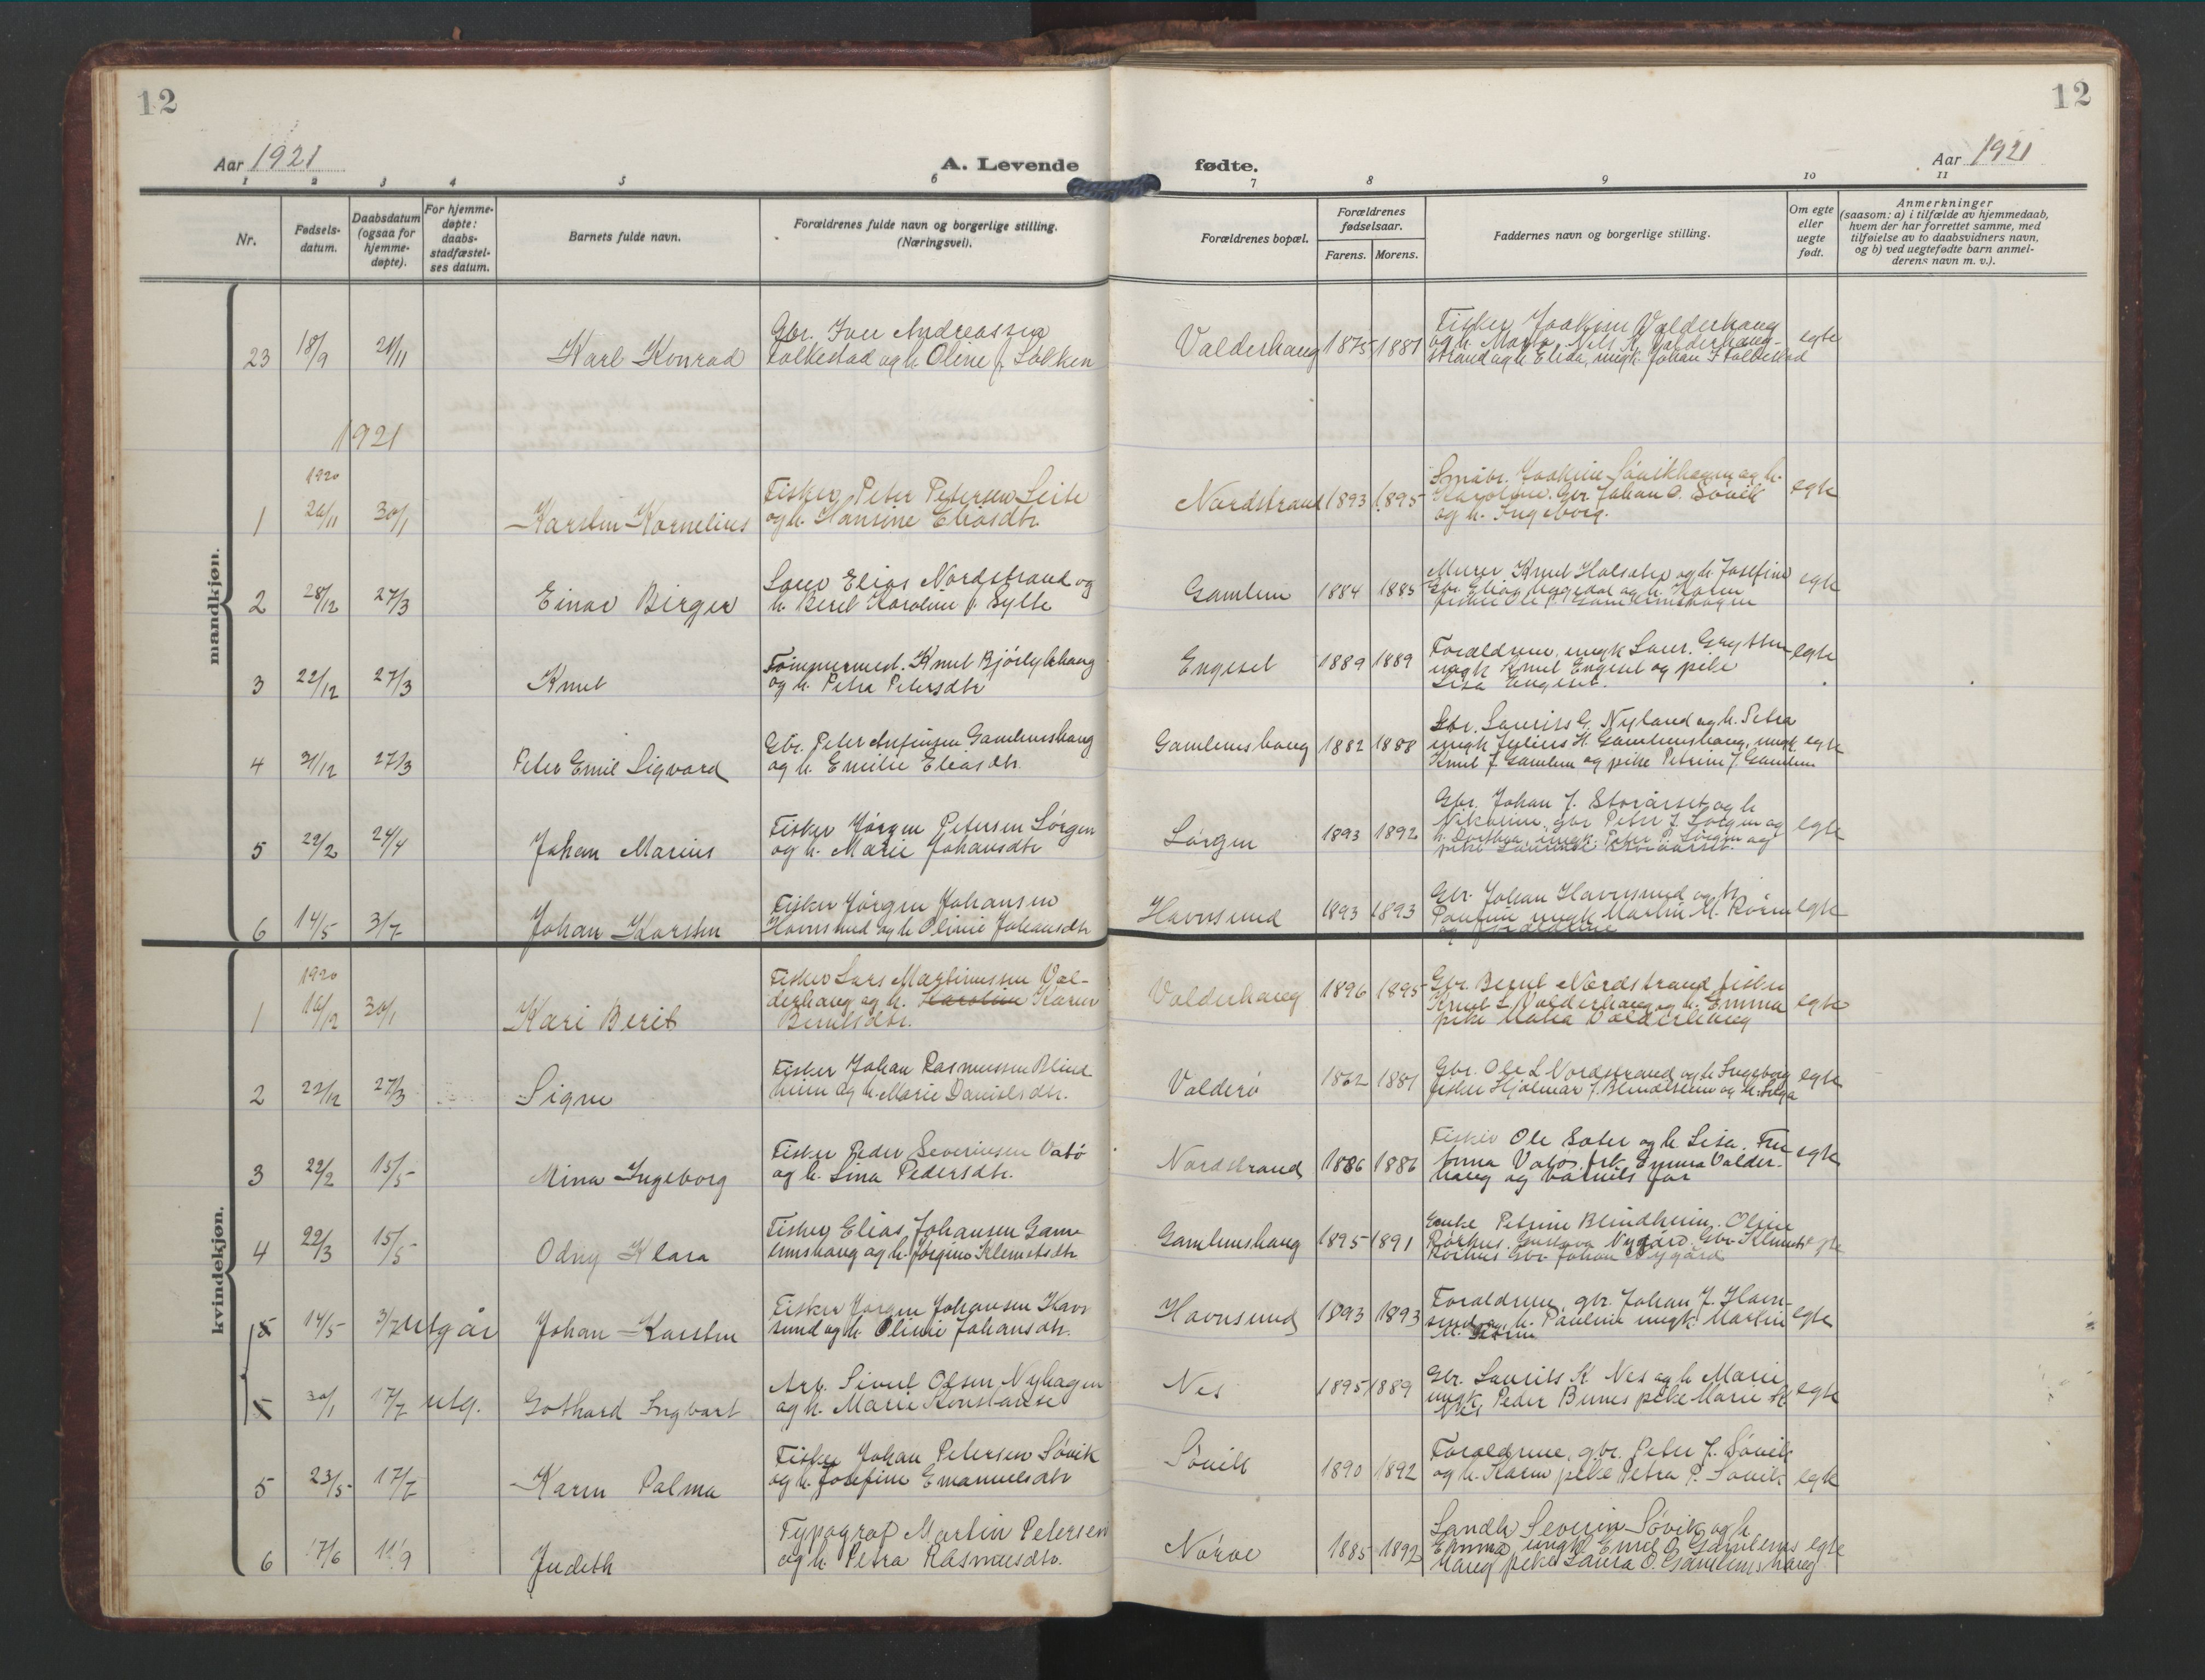 12
12
Aar 1921
A. Levende
fødte.
Aar 1921
1 2 3 4 5 6 7 8 9 10 11
Nr.
Fødsels-
datum.
Daabsdatum
(ogsaa for
hjemme-
døpte).
For hjemme-
døpte:
daabs-
stadfæstel-
ses datum.
Barnets fulde navn.
Forældrenes fulde navn og borgerlige stilling.
(Næringsvei).
Forældrenes bopæl.
Forældrenes
fødselsaar.
Farens. Morens.
Faddernes navn og borgerlige stilling.
Om egte
eller
uegte
født.
Anmerkninger
(saasom: a) i tilfælde av hjemmedaab,
hvem der har forrettet samme, med
tilføielse av to daabsvidners navn,
og b) ved uegtefødte barn anmel-
derens navn m. v.).
mandkjøn.
23 18/9 21/11 Karl Konrad
Gbr. Iver Andreassen
Folkestad og h. Oline f. Løvken
Valderhaug 1875 1881
Fisker Joakim Valderhaug
og h. Marta, Nils K. Valderhaug-
strand og h. Elida, ungk. Johan I Folkestad
egte
1921
1920
1 26/11 30/1 Karsten Kornelius
Fisker Peter Petersen Leite
og h. Hansine Eliasdtr.
Nordstrand 1893 1895
Småbr. Joakim Søvikhagen og h.
Karoline. Gbr. Johan O. Søvik
og h. Ingeborg.
egte
2 28/12 27/3 Einar Birger
Laur. Elias Nordstrand og
h. Berit Karoline f. Sylte
Gamlem 1884 1885
Murer Knut Holsater og h. Josefine
Gbr. Elias Uggedal og h. Karen
fisker Ole P. Gamlemshagen
egte
3 22/12 27/3 Knut
Tømmermed. Knut Bjørlykhaug
og h. Petra Petersdtr
Engeset 1889 1889
Forældrene, ungk Laur. Grytten
ungk Knut Engeset og pike
Lisa Engeset.
egte
4 31/12 27/3 Peter Emil Sigvard
Gbr. Peter Anfinsen Gamlemshaug
og h. Emilie Eliasdtr.
Gamlemshaug 1882 1888
Gbr. Laurits G. Nyland og h. Petra
ungk Julius H. Gamlemshaug, ungk.
Knut J. Gamlem og pike Petrine J. Gamlem
egte
5 22/2 24/4 Johan Marius
Fisker Jørgen Petersen Løvgen
og h. Marie Johansdtr
Løvgen 1893 1892
Gbr. Johan J. Storåset og h
Nikoline, gbr Peter J. Løvgen og
h. Dorthea, ungk. Peter P. Løvgen og
egte
6 14/5 3/7 Johan Karsten
Fisker Jørgen Johansen
Havnsund og h Oline Johansdtr
Havnsund 1893 1893
Gbr. Johan Havnsund og h.
Pauline ungk Martin M. Rørin
og forældrene
egte
kvindekjøn.
1920
1 16/12 30/1 Kari Berit
Fisker Lars Martinussen Val-
derhaug og h. Karoline Karen
Berntsdtr.
Valderhaug 1896 1895
Gbr. Bernt Nordstrand fisker
Knut L. Valderhaug og h. Emma
pike Maria Valderhaug
egte
2 22/12 27/3 Signe
Fisker Johan Rasmussen Blind
heim og h. Marie Danielsdtr.
Valderø 1862 1881
Gbr. Ole L Nordstrand og h Ingeborg
fisker Hjalmar J. Blindheim og h. Helga
egte
3 22/2 15/5 Mina Ingeborg
Fisker Peder Severinsen Vatø
og h. Lina Pedersdtr.
Nordstrand 1886 1886
Fisker Ole Sæter og h Lisa. Fru
Anna Vatøs, frk. Emma Valder-
haug og barnets far
egte
4 22/3 15/5 Odny Klara
Fisker Elias Johansen Gam
lemshaug og h. Jørgine Klemetsdtr
Gamlemshaug 1895 1891
Enke Petrine Blindheim. Oline
Rørhus. Gustava Nygård. Gbr. Klemet
Rørhus Gbr Johan Nygård
egte
5 14/5 3/7 utgår Johan Karsten
Fisker Jørgen Johansen Havn
sund og h Oline Johansdtr.
Havnsund 1893 1893
Forældrene, gbr. Johan J. Havn-
sund og h. Pauline ungk. Martin
M. Rørin
egte
5 30/1 17/7 utg. Gothard Ingvart
Arb. Sivert Olsen Nyhagen
og h. Marie Konstanse
Nes 1895 1889
Gbr. Laurits K. Nes og h Marie
ungk. Peder Bunes pike Marie K
Nes
egte
5 23/5 17/7 Karen Palma
Fisker Johan Petersen Søvik
og h. Josefine Emanuelsdtr
Søvik 1890 1892
Forældrene, gbr. Peter J. Søvik
og h. Karen pike Petra P. Søvik
egte
6 17/6 11/9 Judith
Typograf Martin Petersen
og h. Petra Rasmusdtr.
Nørve 1885 1892
Landh. Severin Søvik og h
Emma ungk. Emil O. Gamlems
haug pike Laura O. Gamlemshaug
egte